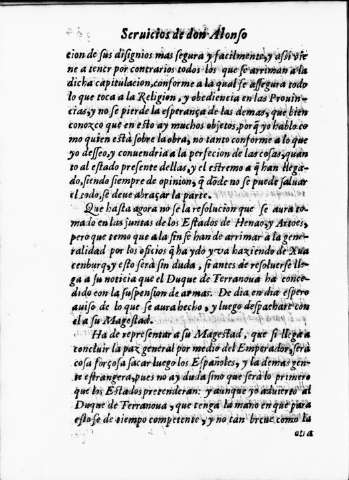 Seruicios de don Alonso
cion de sus disignios mas segura y facilmente, y assi vie
ne a tener por contrarios todos los que se arriman a la
dicha capitulacion, conforme a la qual se assegura todo
lo que toca a la Religion, y obediencia en las Prouin-
cias, y no se pierde la esperança de las demas, que bien
conozco que en esto ay muchos objetos, por q̃ yo hablo co
mo quien està sobre la obra, no tanto conforme a lo que
yo desseo, y conuendria a la perfecion de las cosas, quan
to al estado presente dellas, y el estremo a q̃ han llega-
do, siendo siempre de opinion, q̃ dōde no se puede saluar
el todo, se deue abraçar la parte.
Que hasta agora no se la resolucion que se aura to-
mado en las juntas de los Estados de Henao, y Artoes,
pero que temo que a la fin se han de arrimar a la gene-
ralidad por los oficios q̃ ha ydo y va haziendo de Xua
cenburg, y esto serà sin duda, si antes de resoluerse lle-
ga a su noticia que el Duque de Terranoua ha conce-
dido con la suspension de armas. De dia en dia espero
auiso de lo que se aura hecho, y luego despachare con
el a su Magestad.
Ha de representar a su Magestad, que si llega a
concluir la paz general por medio del Emperador, serà
cosa forçosa sacar luego los Españoles, y la demas gen-
te estrangera, pues no ay duda sino que serà lo primero
que los Estados pretenderan: y aunque yo aduierto al
Duque de Terranoua, que tenga la mano en que para
esto se de tiempo competente, y no tan breue como la